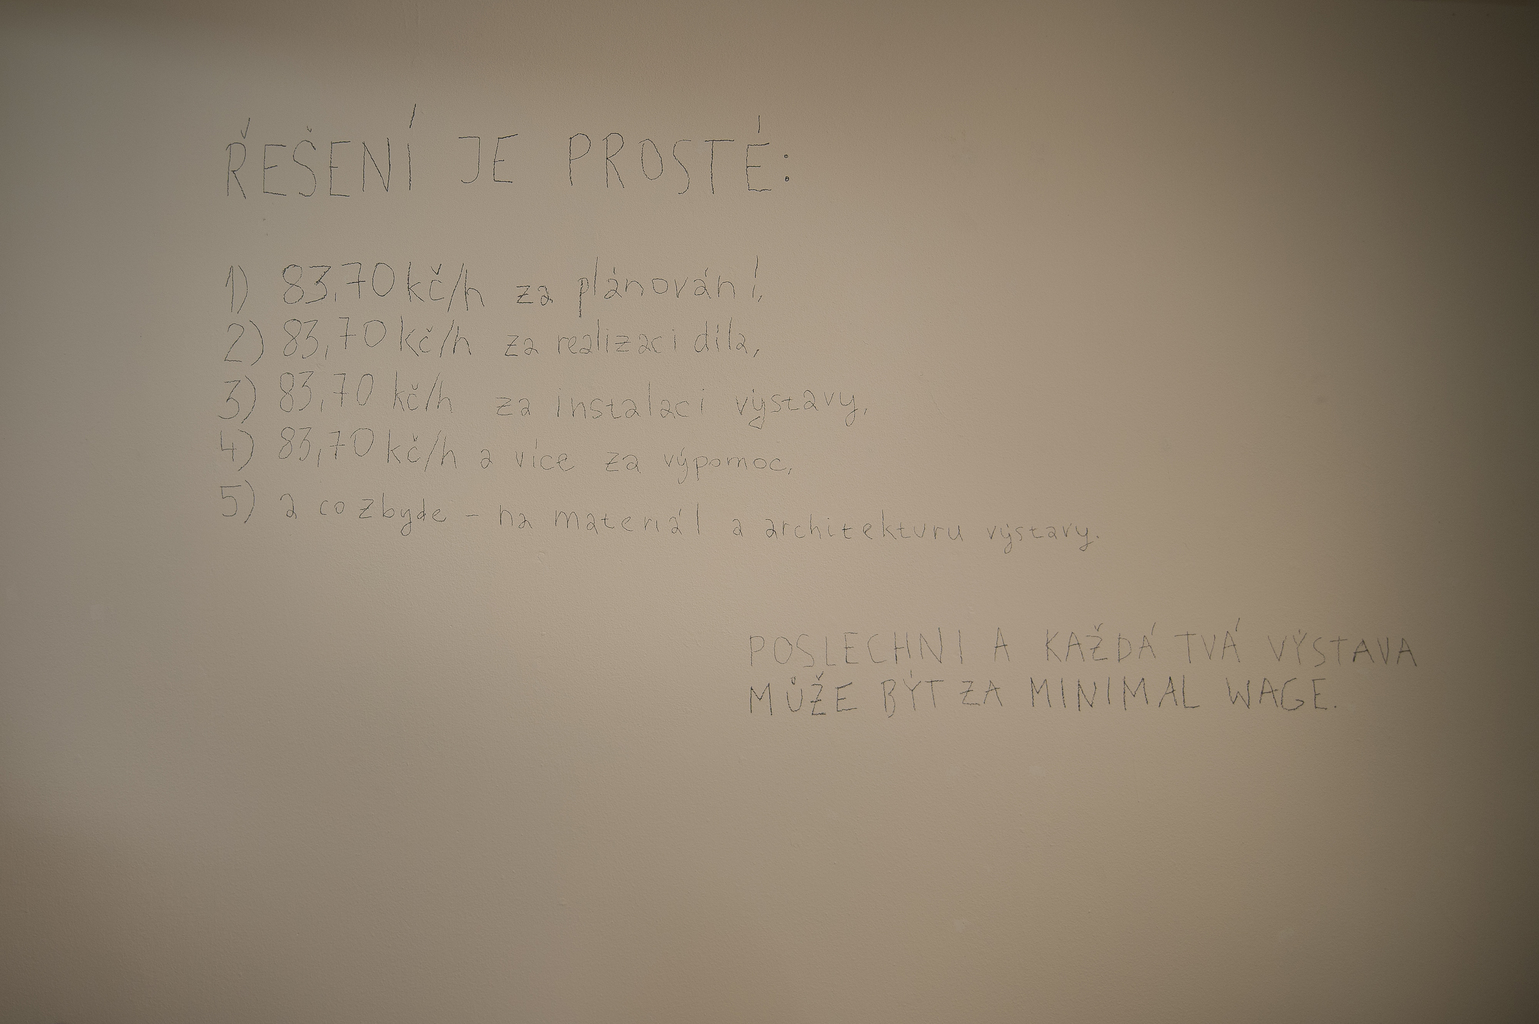 ŘEŠENÍ JE PROSTÉ:
1) 83,70 kč/h za plánování,
2) 83,70 kč/h za realizaci díla,
3) 83,70 kč/h za instalaci výstavy,
4) 83,70 kč/h a více za výpomoc,
5) a co zbyde - na materiál a architekturu výstavy.
POSLECHNI A KAŽDÁ TVÁ VÝSTAVA
MŮŽE BÝT ZA MINIMAL WAGE.